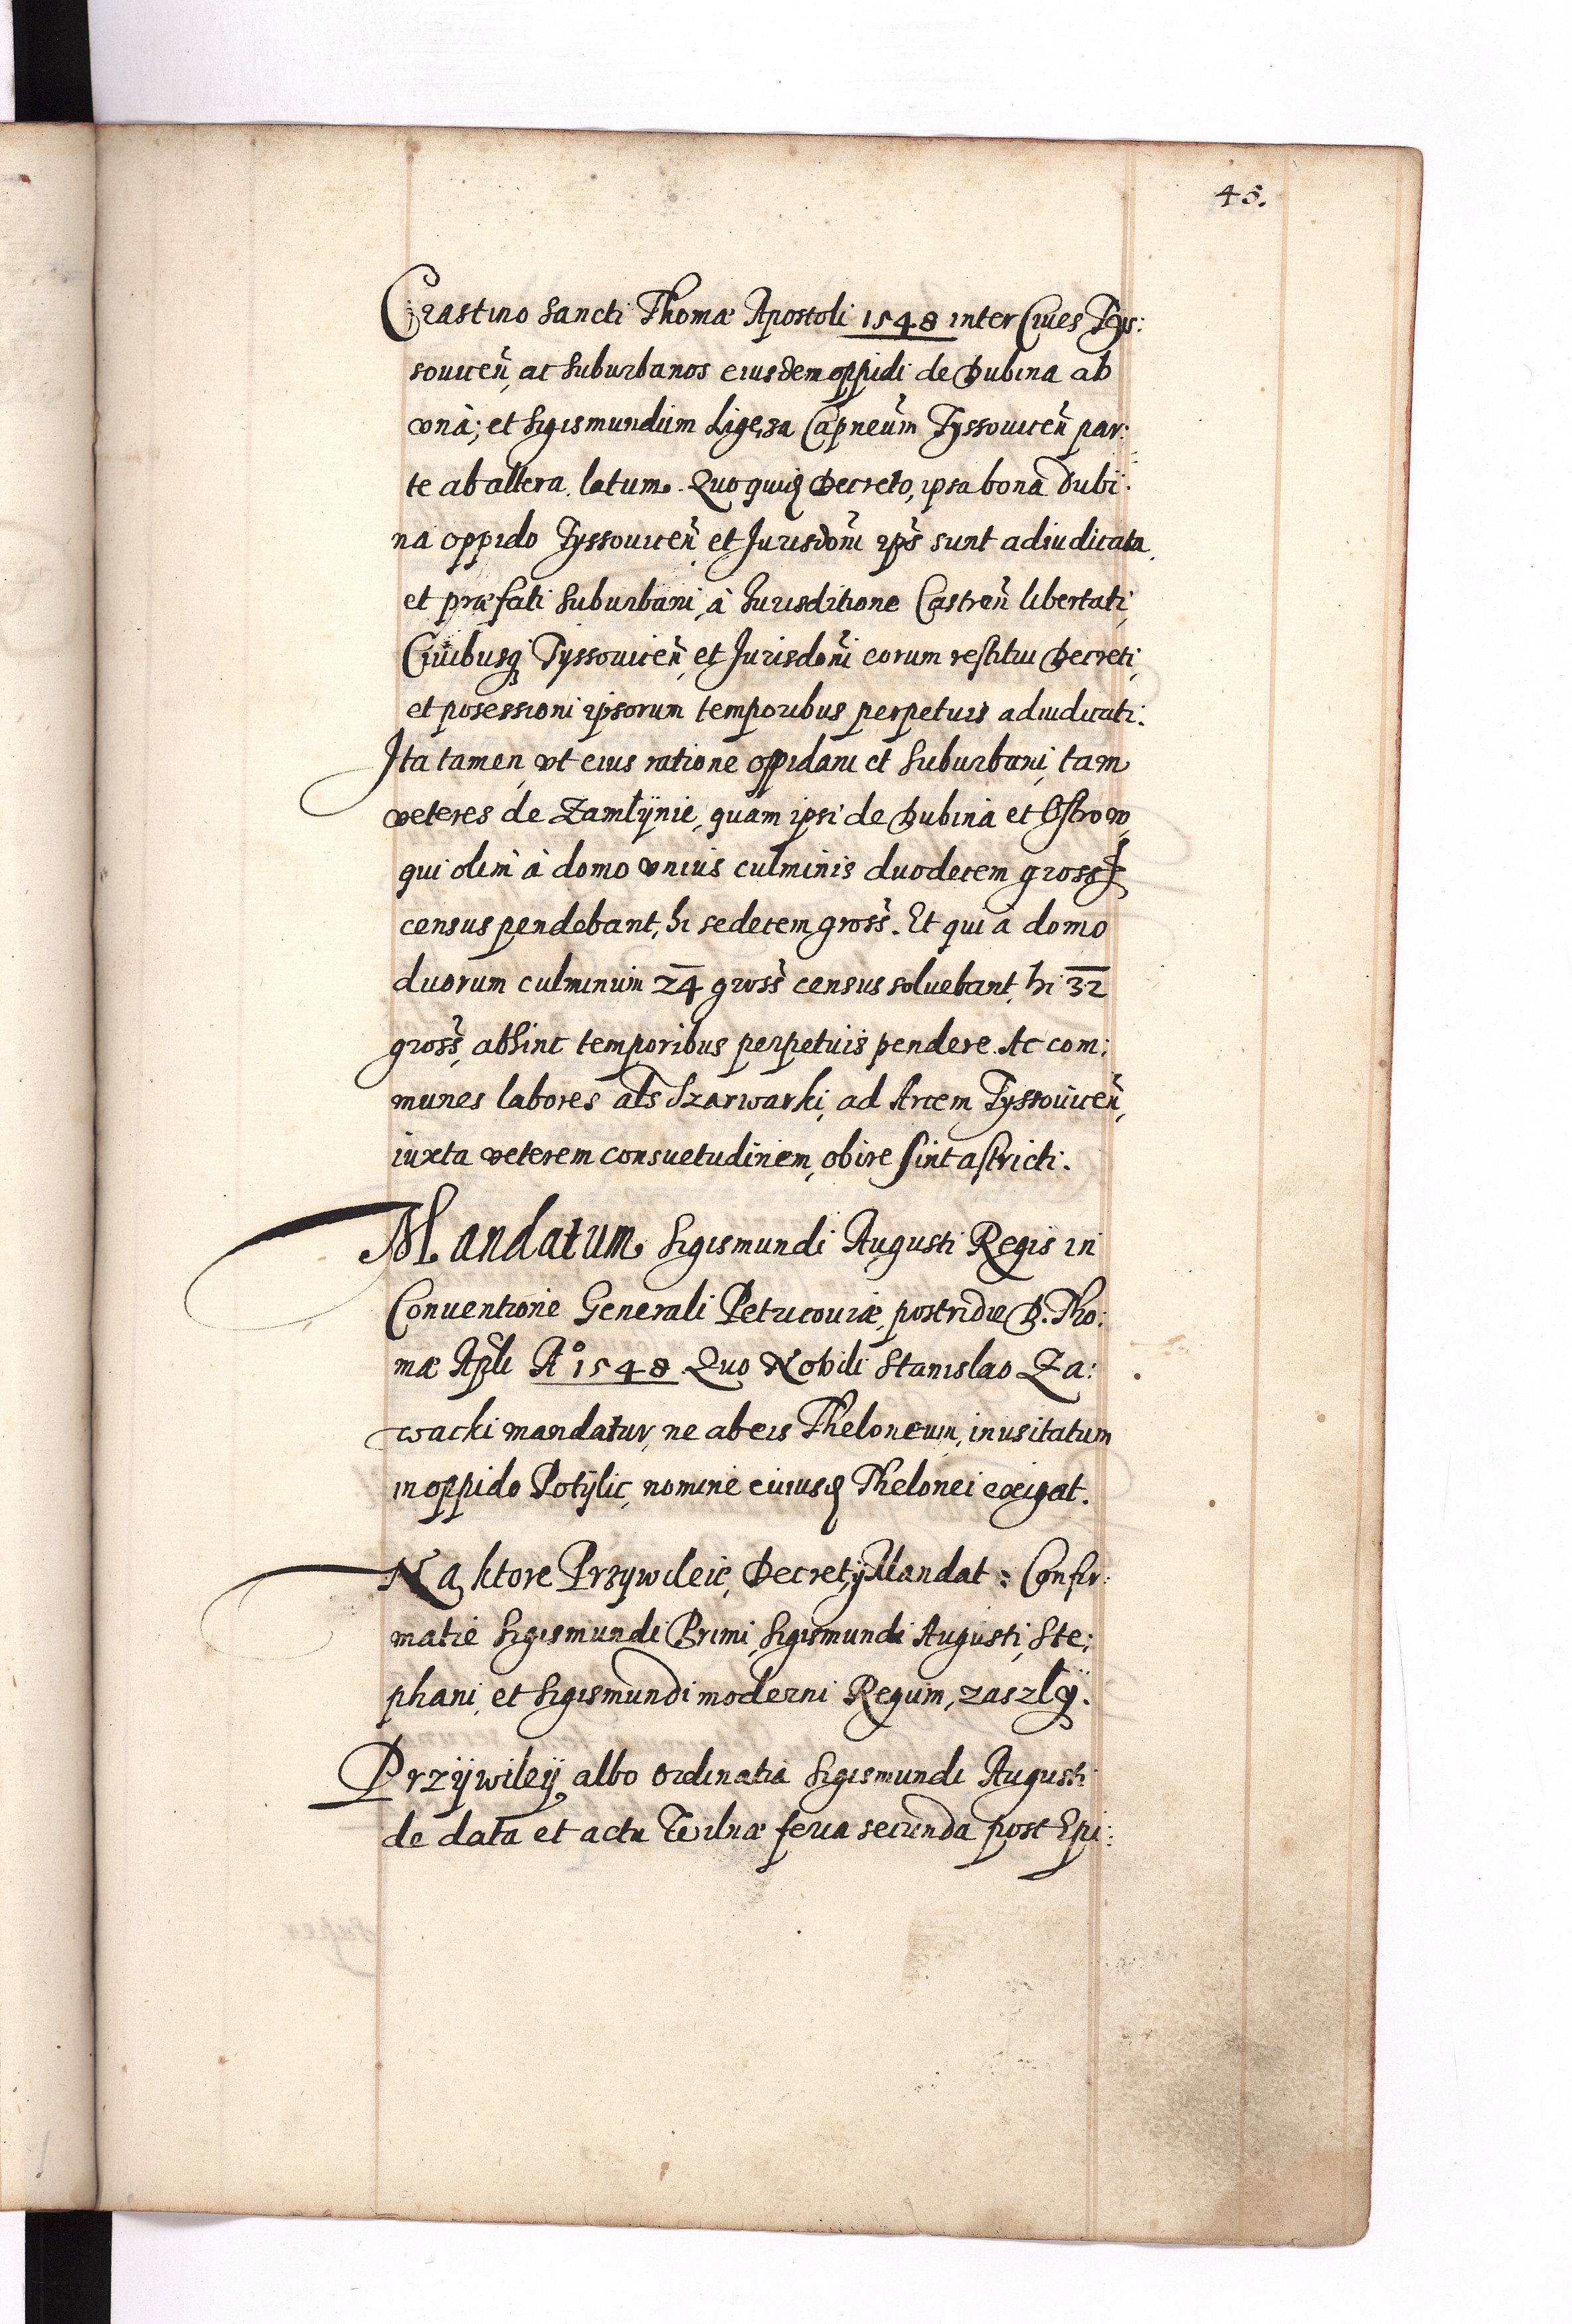 48.
Crastino Sancti Thomæ Apostoli 1548 inter Ciues Tys:
souicen̄, ac Suburbanos eiusdem oppidi de Dubina ab
vnà; et Sigismundum Ligęza Capneūm Tyssouicen̄ par:
te ab altera latum. Quo quid Decreto, ipsa bona Dubi:
na oppido Tyssouicen̄ et Jurisdoni ips̄ sunt adiudicata
et præfati Suburbani, à Iurisditione Castren̄ libertati,
Ciuibusq Tyssouicen̄, et Jurisdoni eorum restitui Decreti,
et posessioni ipsorum temporibus perpetuis adiudicati.
Ita tamen, vt eius ratione oppidani et Suburbani, tam
veteres de Zamłÿnie, quam ipsi de Dubina et Ostrow
qui olim à domo vnius culminis duodecem gross
census pendebant, hi sedecem gross̄. Et qui à domo
duorum culminum 24 gross̄ census soluebant, hi 32
gross̄, abhinc temporibus perpetuis pendere. Ac com:
munes labores als Szarwarki, ad Arcem Tyssouicen̄,
iuxta veterem consuetudinem, obire sint astricti.
Mandatum Sigismundi Augusti Regis in
Conuentione Generali Petricouiæ, postridie B. Tho:
mæ Apli A° 1548 Quo Nobili Stanislao Za:
wacki mandatur, ne ab eis Theloneum, inusitatum
in oppido Potÿlic, nomine cuiusd Thelonei exigat.
Na ktore Przywileie, Decret, ÿ Mandat: Confir:
matie Sigismundi Primi, Sigismundi Augusti, Ste:
phani, et Sigismundi moderni Regum, zaszłÿ.
Przÿwileÿ albo Ordinatia Sigismundi Augusti
de data et actu Wilnæ feria secunda post Epi: